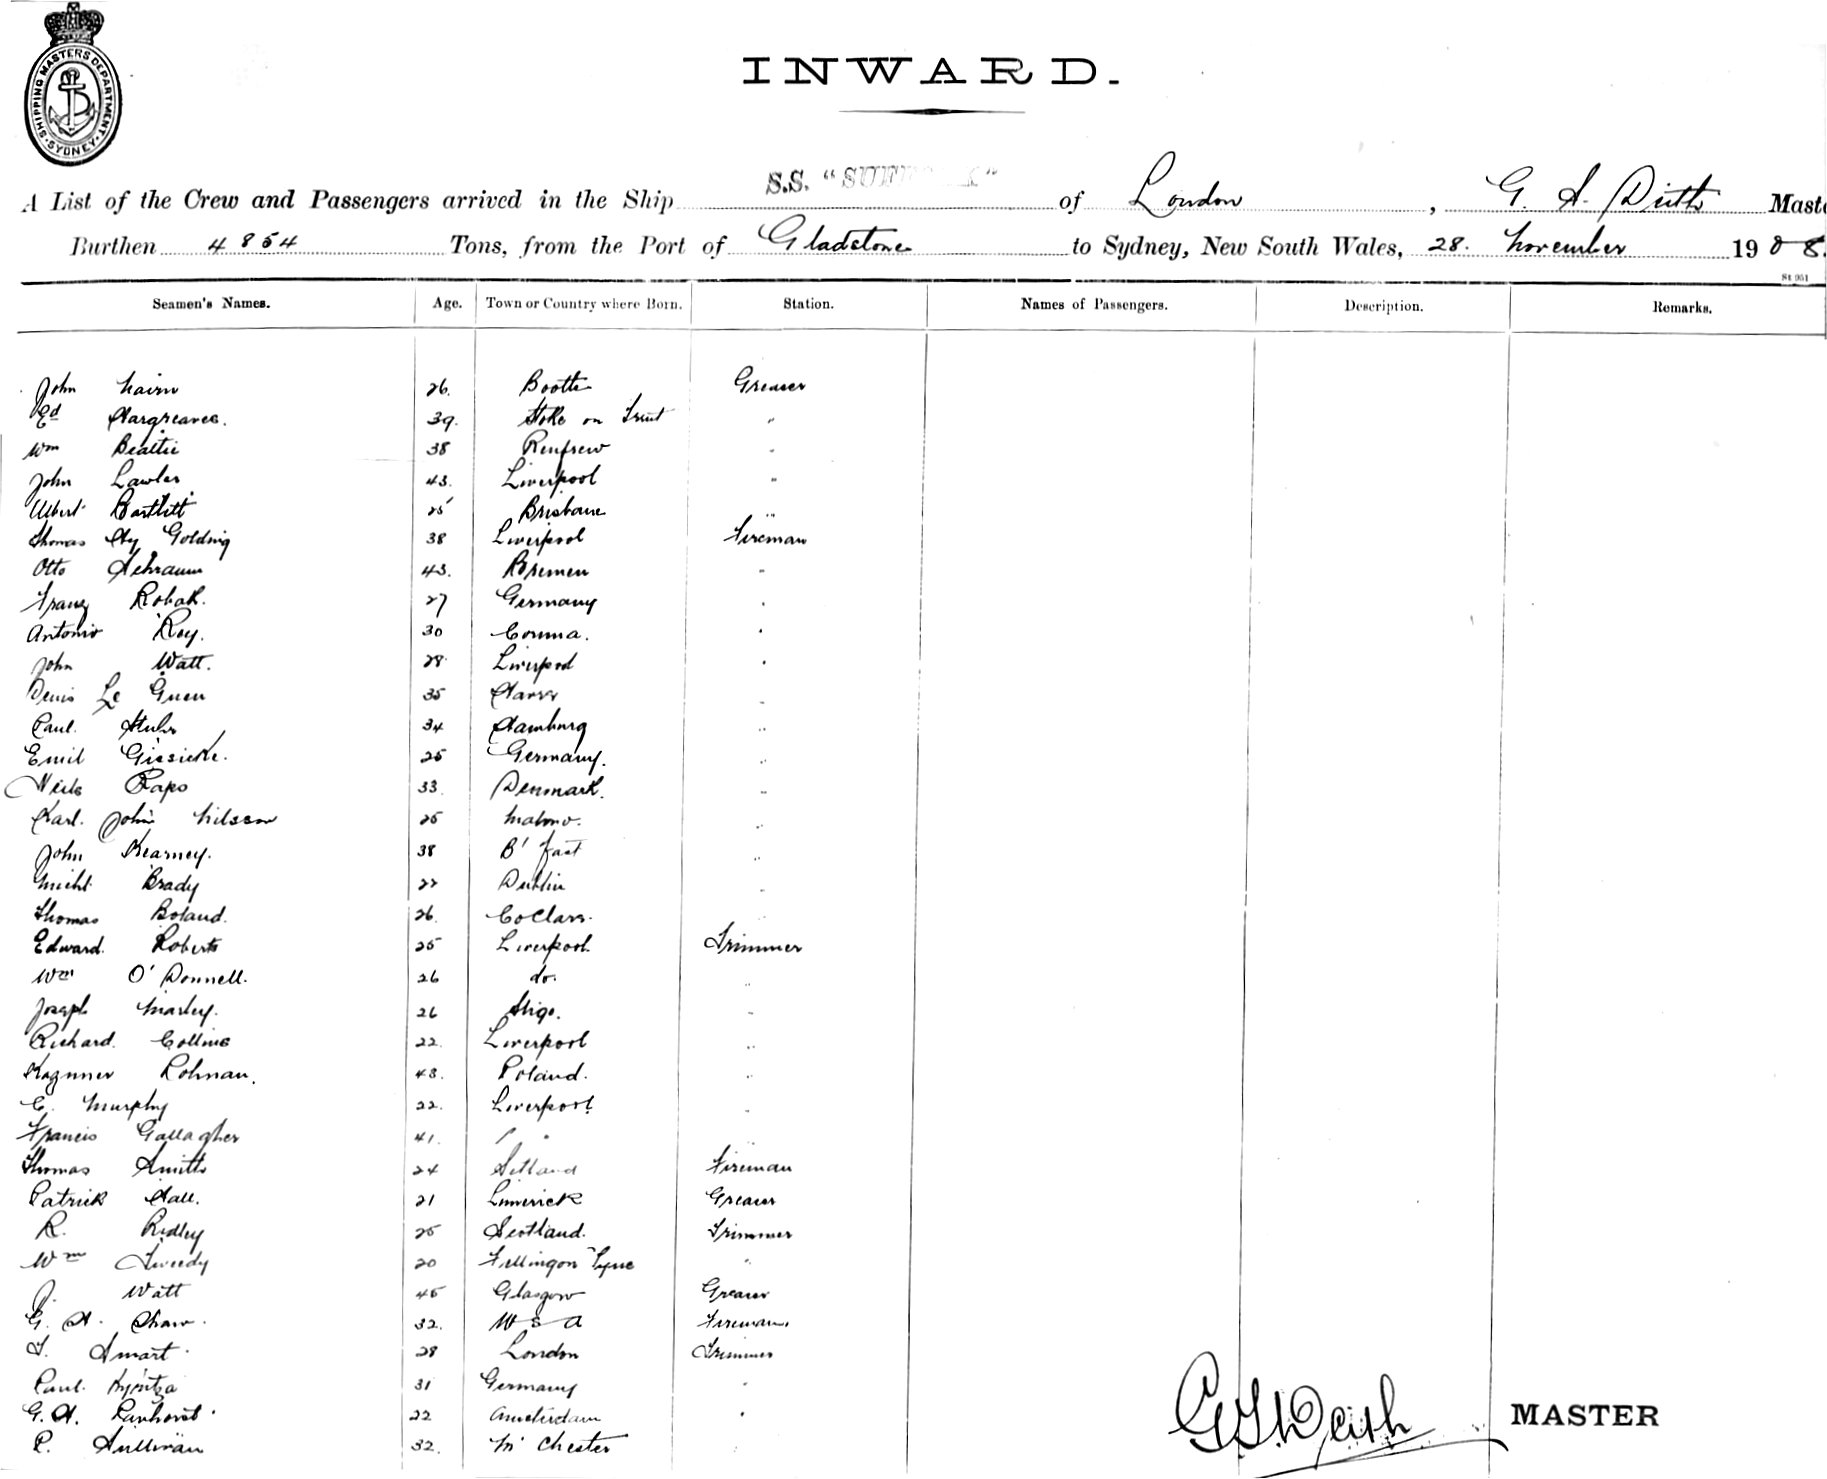 SHIPPING MASTERS DEPARTMENT
SYDNEY
INWARD.
A List of the Crew and Passengers arrived in the Ship S.S. "SUFFOLK" of London, G. Maste
Burthen 4854 Tons, from the Port of Gladstone to Sydney, New South Wales, 28. November 1908.
St 951
Seamen's Names. Age. Town or Country where Born. Station. Names of Passengers. Description. Remarks.
John Nairn 26. Bootle Greaser
Ed Hargreaves. 39. Stoke on Trent "
Wm Beattie 38 Renfrew "
John Lawler 43. Liverpool "
Albert Bartlett 25 Brisbane "
Thomas Hy Golding 38 Liverpool Fireman
Otto Schramm 43. Bremen "
Franz Robak. 27 Germany "
Antonio Rey. 30 Corunna. "
John Watt. 28 Liverpool "
Denis Le Guen 35 "
Paul Stuhr 34 Hamburg "
Emil Giesicke. 25 Germany. "
Neils Raps 33 Denmark. "
Karl John Nilsson 25 "
John Kearney. 38 B'fast "
Michl Brady 22 Dublin "
Thomas Boland. 26. Co Clare. "
Edward. Roberts 25 Liverpool. Trimmer
Wm O'Donnell. 26 do. "
Joseph Marley. 26 Sligo. "
Richard. Collins 22. Liverpool "
Rohman. 43. Poland. "
C. Murphy 22. Liverpool "
Francis Gallagher 41. " "
Thomas Smith 24 Fireman
Patrick Hall. 21 Limerick Greaser
R. Ridley 25 Scotland. Trimmer
Wm Tweedy 20 Tyne "
J. Watt 45 Glasgow Greaser
G. H. Shaw. 32. U S A Fireman.
T. Smart. 28 London Trimmer
Paul. 31 Germany "
G. H. 22 Amsterdam "
P. Sullivan 32. M'chester
MASTER